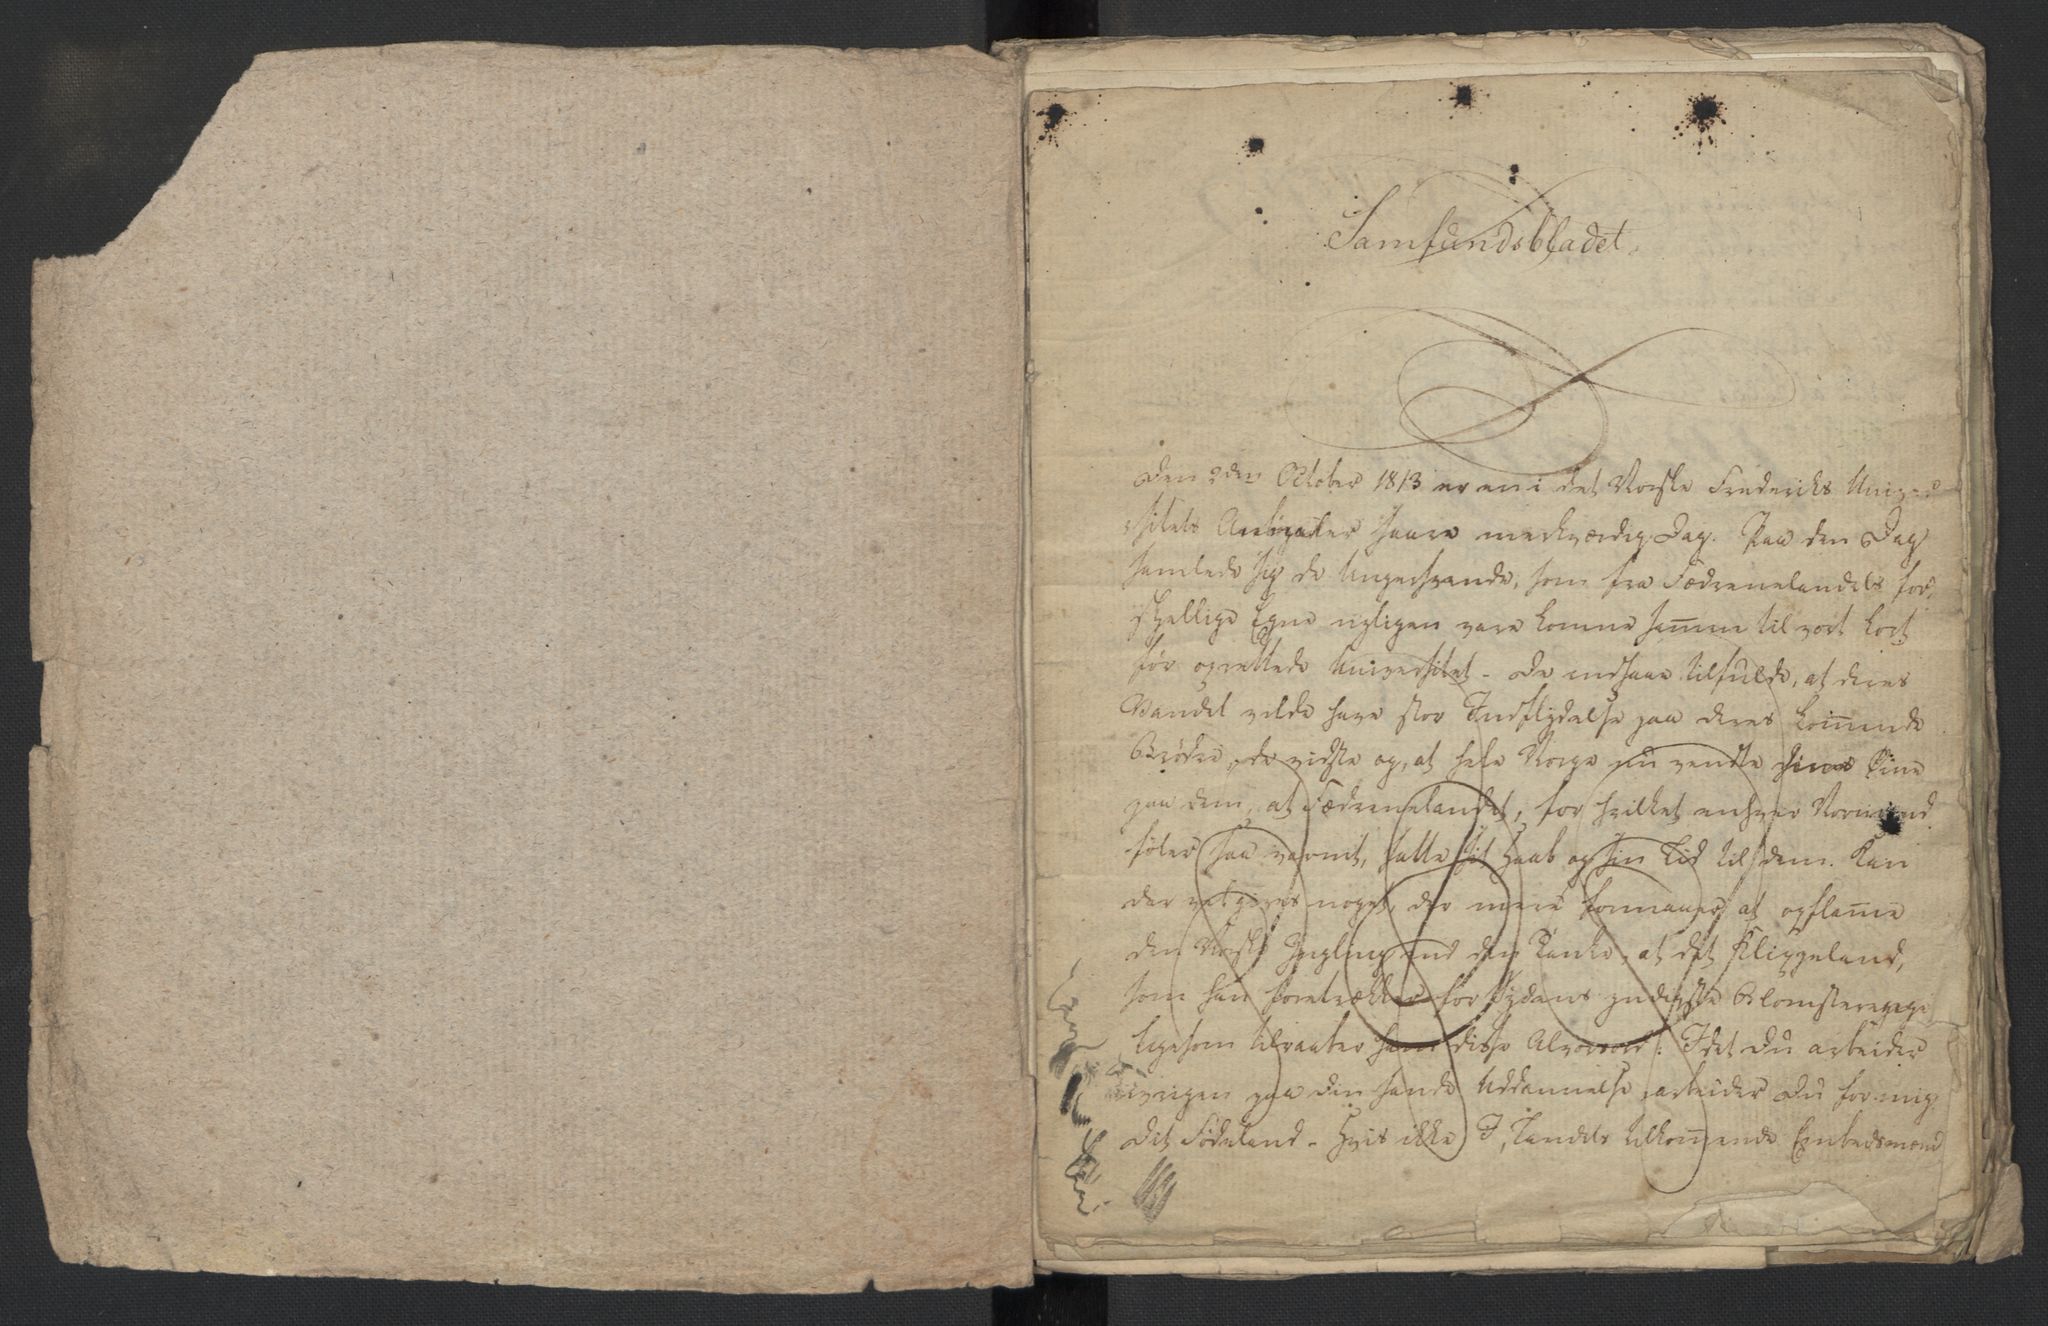 Samfundsbladet.
Den 2den October 1813 er en i det Norske Frederiks Univer-
sitets Annaler saare mærkværdig Dag. Paa den Dag
samlede sig de Ungersvende, som fra Fædrenelandets for-
skjellige Egne nyligen vare komne sammen til vort kort
før oprettede Universitet. De indsaae tilfulde, at deres
Vandel vilde have stor Indflydelse paa deres kommende
Brødre, de vidste og, at hele Norge nu vendte sine Øine
paa dem, at Fædrenelandet, for hvilket enhver Normand
føler saa varmt, satte sit Haab og sin Lid til dem. Kan
der vel gives noget, der mere formaaer at opflamme
den Norske Yngling end den Tanke, at det Klippeland,
som han foretrækker for Sydens yndigste Blomsteregne
ligesom tilraaber ham disse Alvorsord: Idet Du arbeider
ivrigen paa din sande Uddannelse, arbeider Du for mig
dit Fødeland. Hvis ikke I, Landets tilkommende Embedsmænd